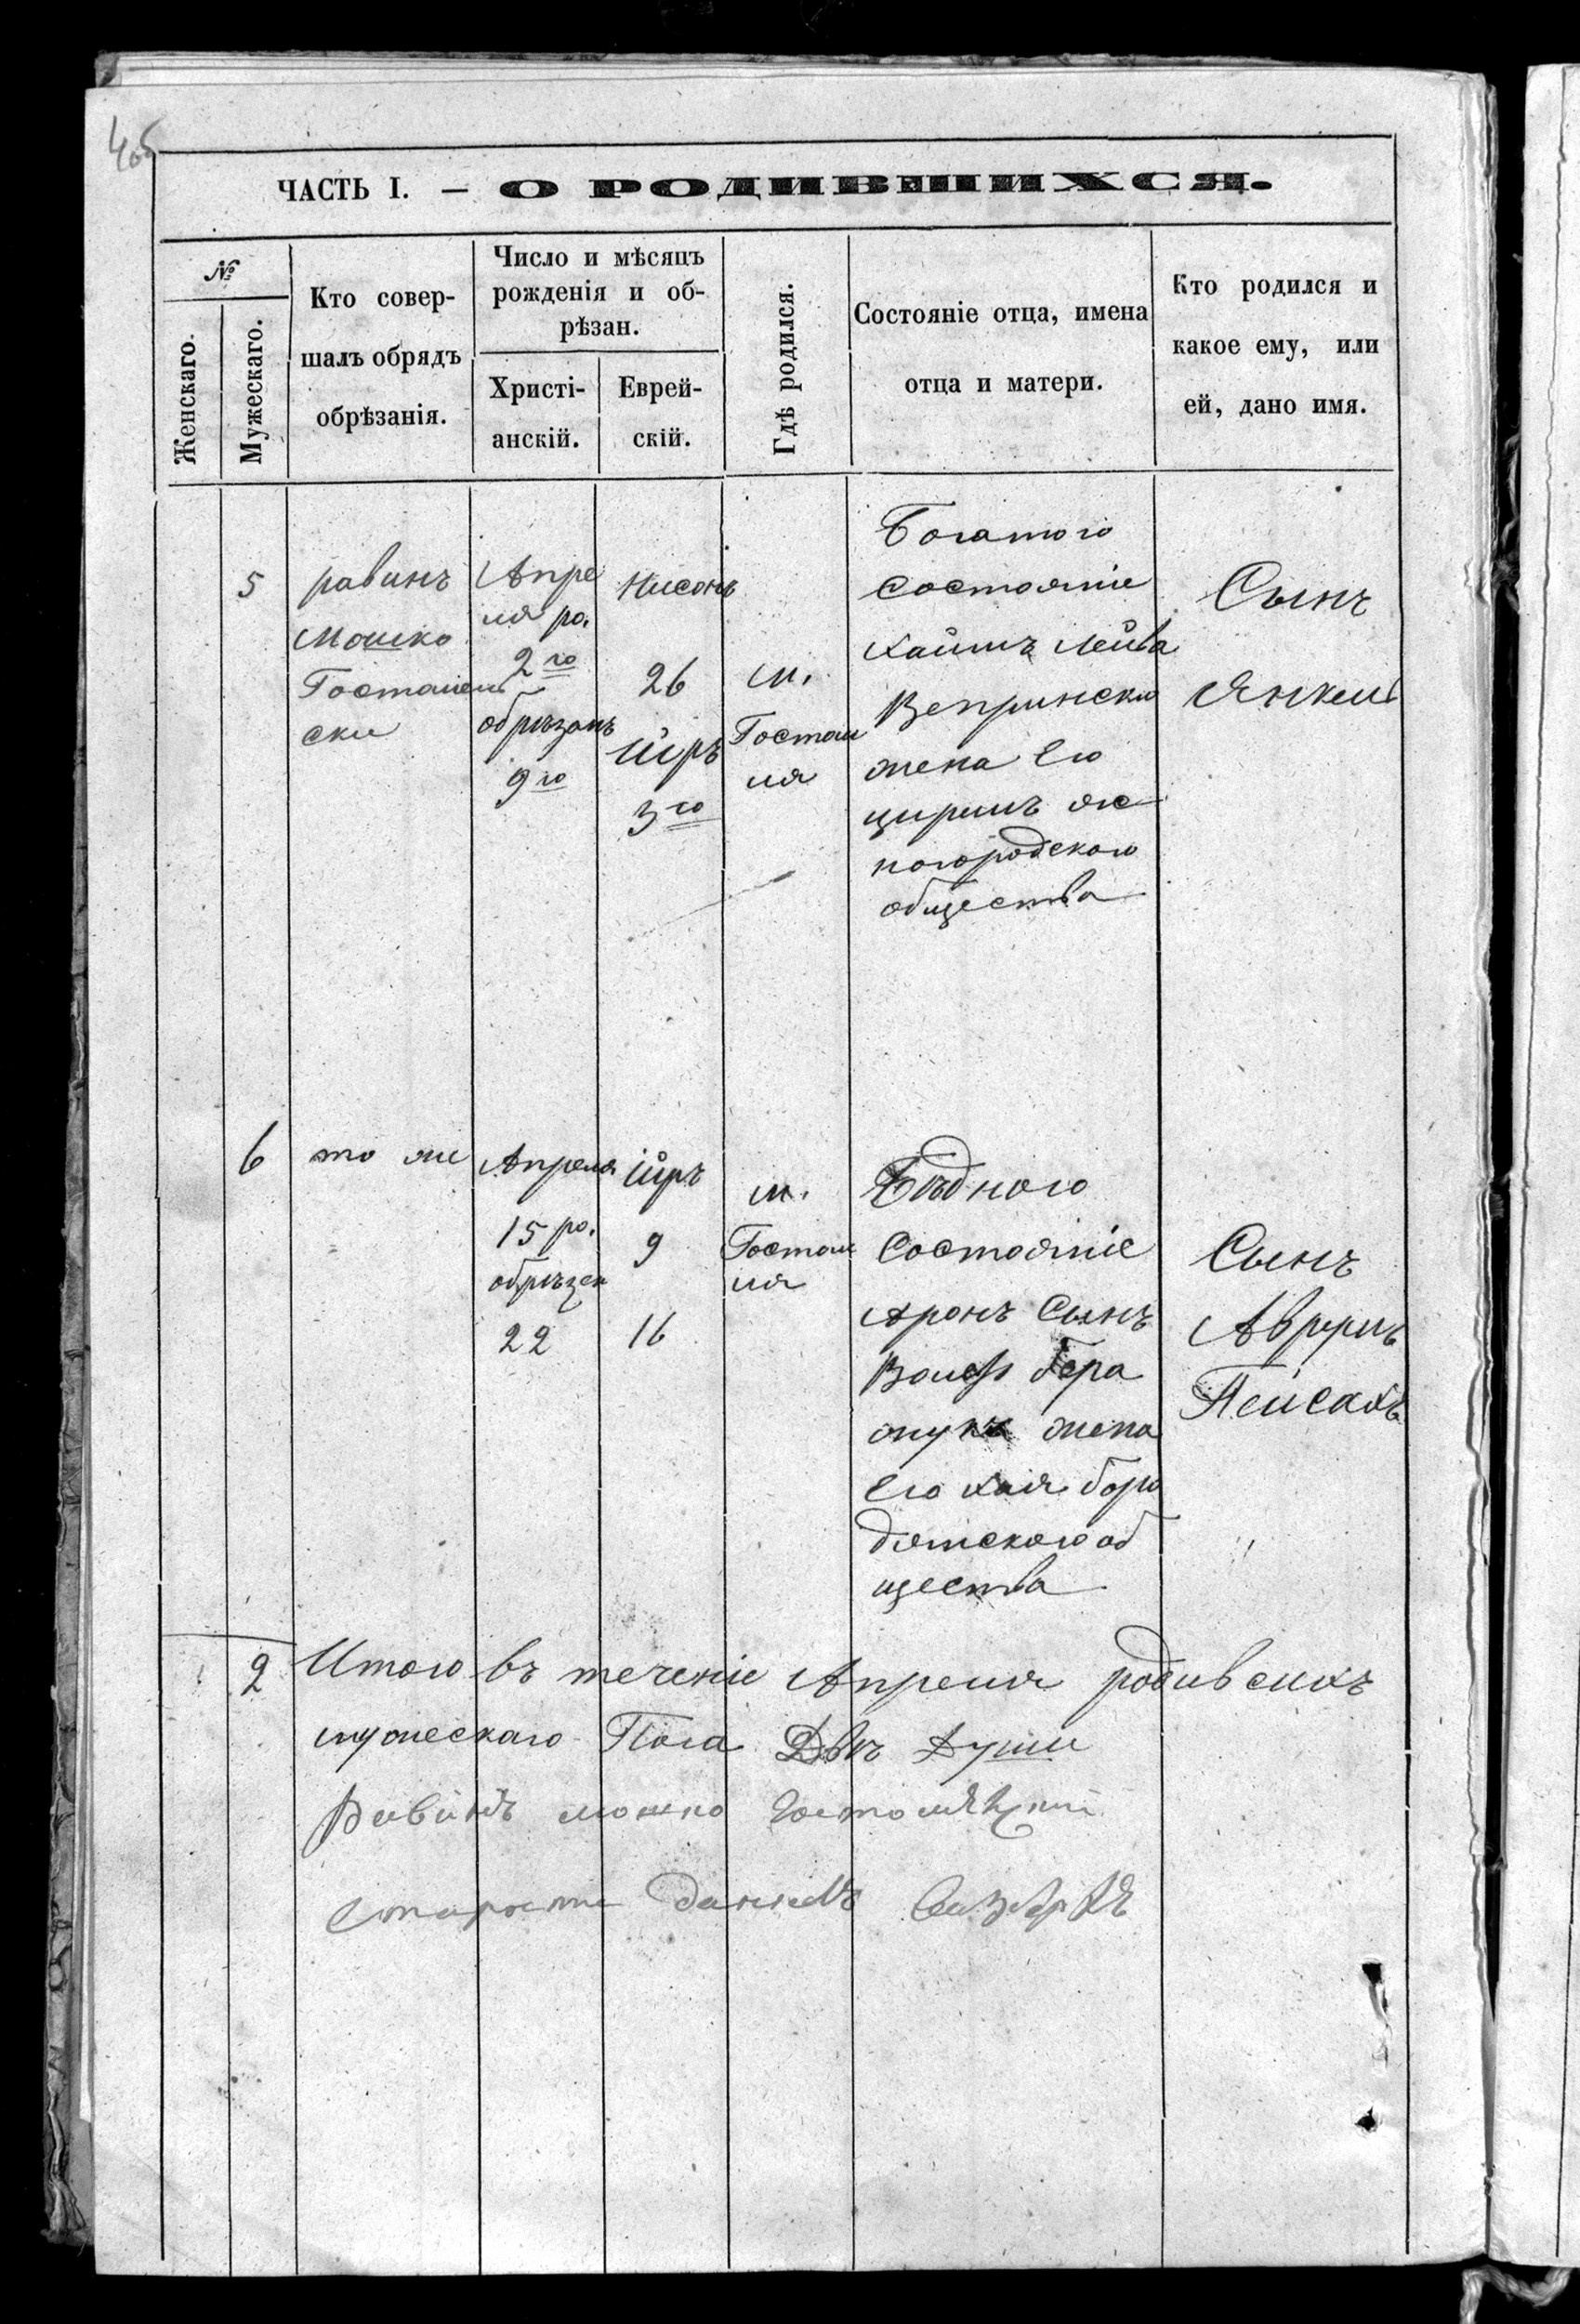 405
ЧАСТЬ I. — О РОДИВШИХСЯ.
№
Женскаго.
Мужескаго.
Кто совер-
шалъ обрядъ
обрѣзанія.
Число и мѣсяцъ
рожденія и об-
рѣзан.
Христі-
анскій.
Еврей-
скій.
Гдѣ родился.
Состояніе отца, имена
отца и матери.
Кто родился и
какое ему, или
ей, дано имя.
5
равинъ
Мошко
Гостомель
ски
Апре
ля ро.
2го
обрѣзанъ
9го
Нисонъ
26
Іиръ
3го
м.
Гостом
ля
Богатого
состояніе
Хаимъ Лейба
Вепрински
жена Его
общества
Сынъ
Янкель
6
то же
Апреля
15 ро.
обрѣзан
22
Іиръ
9
16
м.
Гостом
ля
Бѣдного
Состояніе
Аронъ Сынъ
жена
Его Хая боро
дянского об
щества
Сынъ
Аврумъ
Пейсахъ
2
Итого въ теченіе Апреля родивсихъ
мужескаго Пола Двѣ Души
Равинъ мошко Гостомлѣцкій
Староста даніелъ